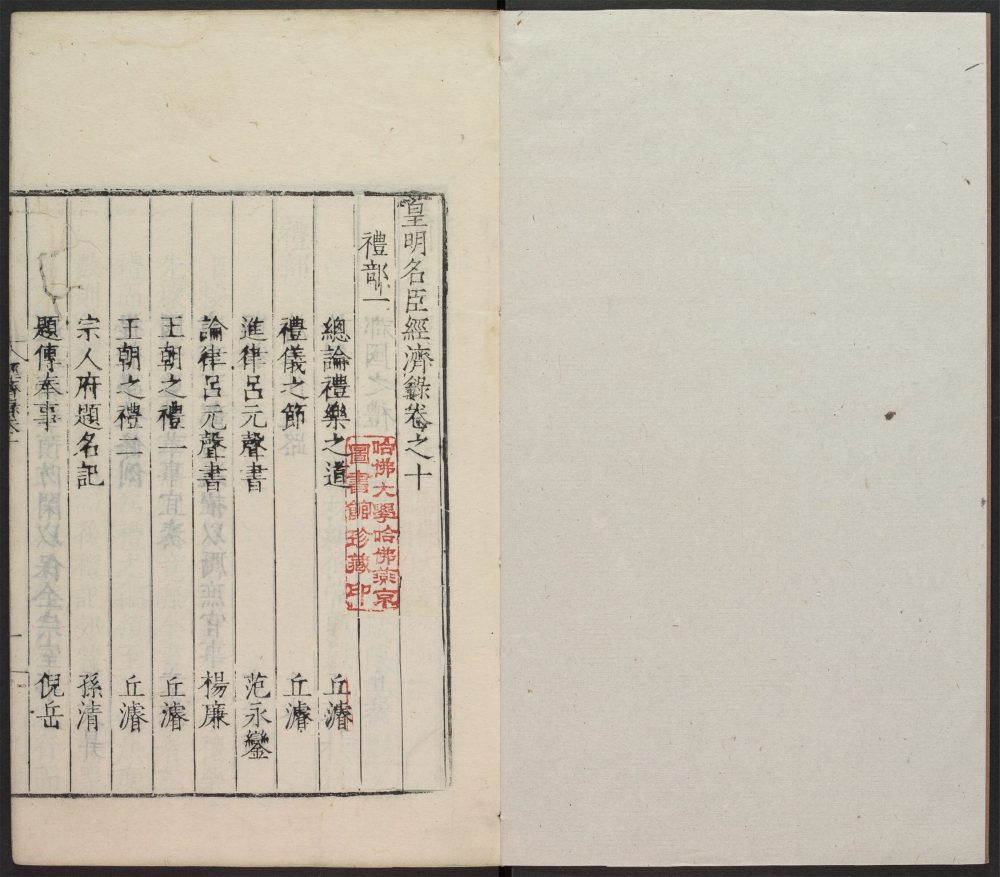 皇明名臣經濟錄卷之十
禮部一
總論禮樂之道 丘濬
禮儀之節 丘濬
進律呂元聲書 范永鑾
論律呂元聲書 楊廉
王朝之禮一 丘濬
王朝之禮二 丘濬
宗人府題名記 孫清
題傳奉事 倪岳
哈佛大學哈佛燕京
圖書館珍藏印